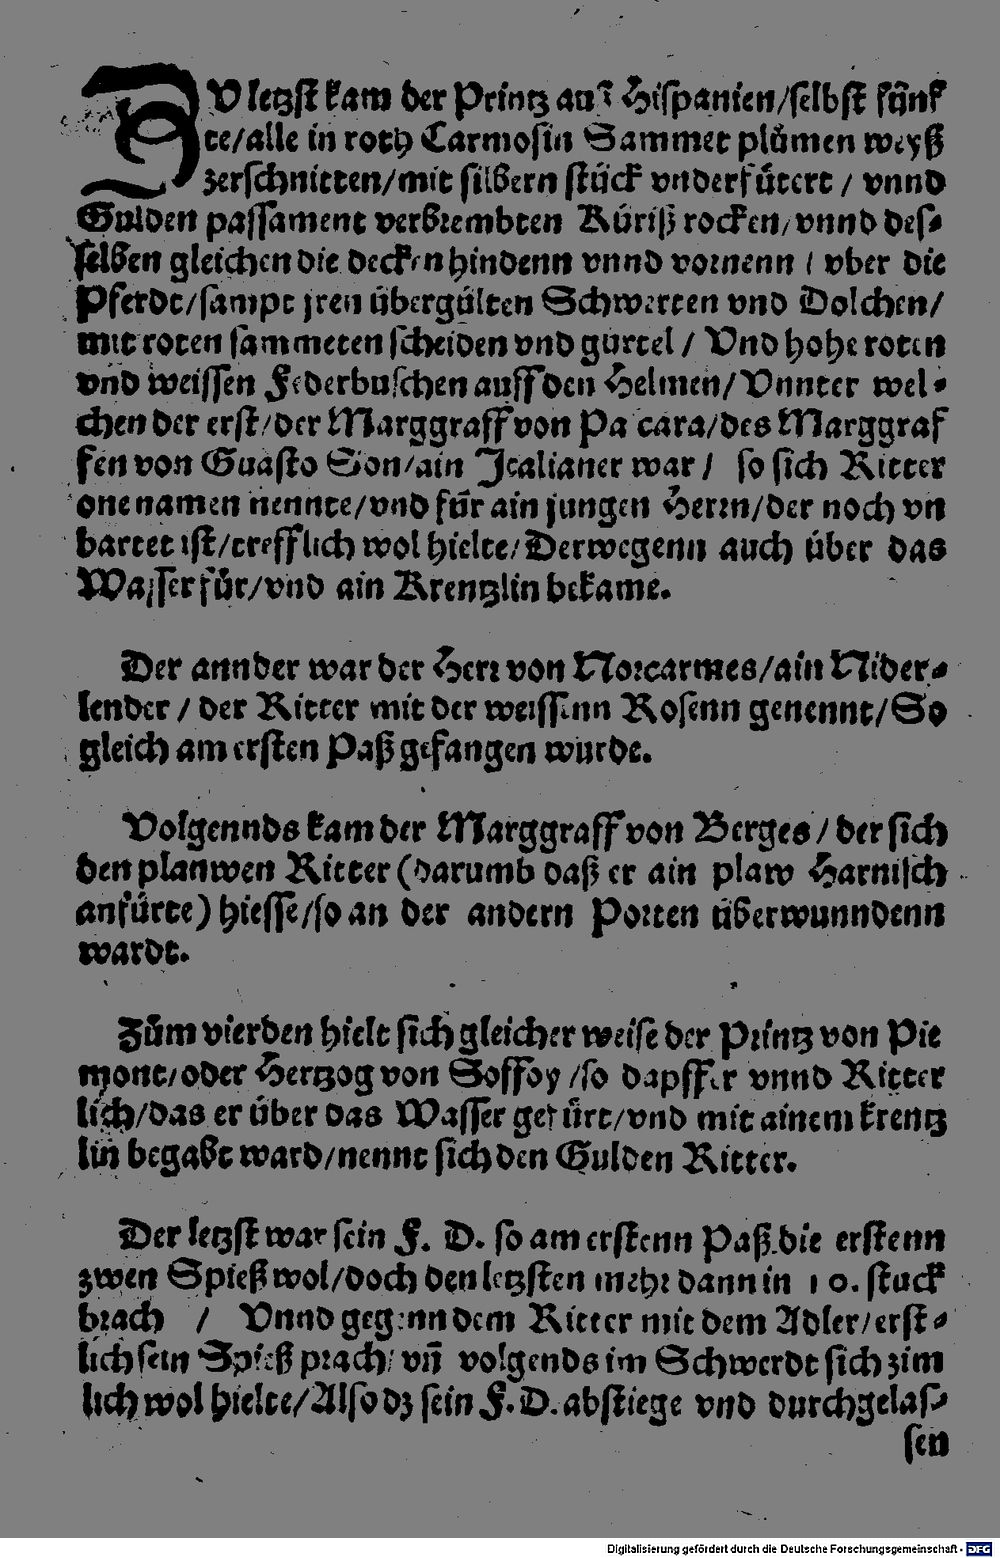 ZV letzst kam der Printz auß Hispanien/selbst fünf
te/alle in roth Carmosin Sammet plůmen weyß
zerschnitten/mit silbern stück vnderfůtert / vnnd
Gulden passament verbrembten Küriß rocken/vnnd des-
selben gleichen die decken hindenn vnnd vornenn / vber die
Pferdt/sampt jren übergülten Schwerten vnd Dolchen/
mit roten sammeten scheiden vnd gürtel / Vnd hohe roten
vnd weissen Federbuschen auff den Helmen/Vnnter wel-
chen der erst/der Marggraff von Pascara/des Marggraf
fen von Guasto Son/ain Italianer war / so sich Ritter
one namen nennte/vnd für ain jungen Herrn/der noch vn
bartet ist/trefflich wol hielte/Derwegenn auch über das
Wasser für/vnd ain Krentzlin bekame.
Der annder war der Herr von Norcarmes/ain Nider-
lender / der Ritter mit der weissenn Rosenn genennt/So
gleich am ersten Paß gefangen wurde.
Volgennds kam der Marggraff von Berges / der sich
den plawen Ritter (darumb daß er ain plaw Harnisch
anfürte) hiesse/so an der andern Porten überwunndenn
wardt.
Zům vierden hielt sich gleicher weise der Printz von Pie
mont/oder Hertzog von Soffoy /so dapffer vnnd Ritter
lich/das er über das Wasser gefürt/vnd mit ainem krentz
lin begabt ward/nennt sich den Gulden Ritter.
Der letzst war sein F. D. so am erstenn Paß die erstenn
zwen Spieß wol/doch den letzsten mehr dann in 10. stuck
brach / Vnnd gegenn dem Ritter mit dem Adler/erst-
lich sein Spieß prach/ vñ volgends im Schwerdt sich zim
lich wol hielte/Also dz sein F. D. abstiege vnd durchgelas-
sen
Digitalisierung gefördert durch die Deutsche Forschungsgemeinschaft - DFG